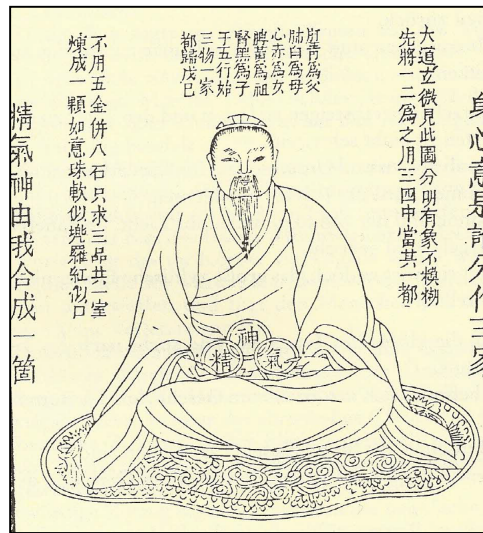 身心意是誰分作三家
大道玄微見此圖分明有象不模糊
先將一二爲之用三四中當其一都
肝青爲父
肺白爲母
心赤爲女
脾黃爲祖
腎黑爲子
子五行始
三物一家
都歸戊己
不用五金併八石只求三品共一室
煉成一顆如意珠軟似兜羅紅似日
精氣神由我合成一箇
神
精
氣